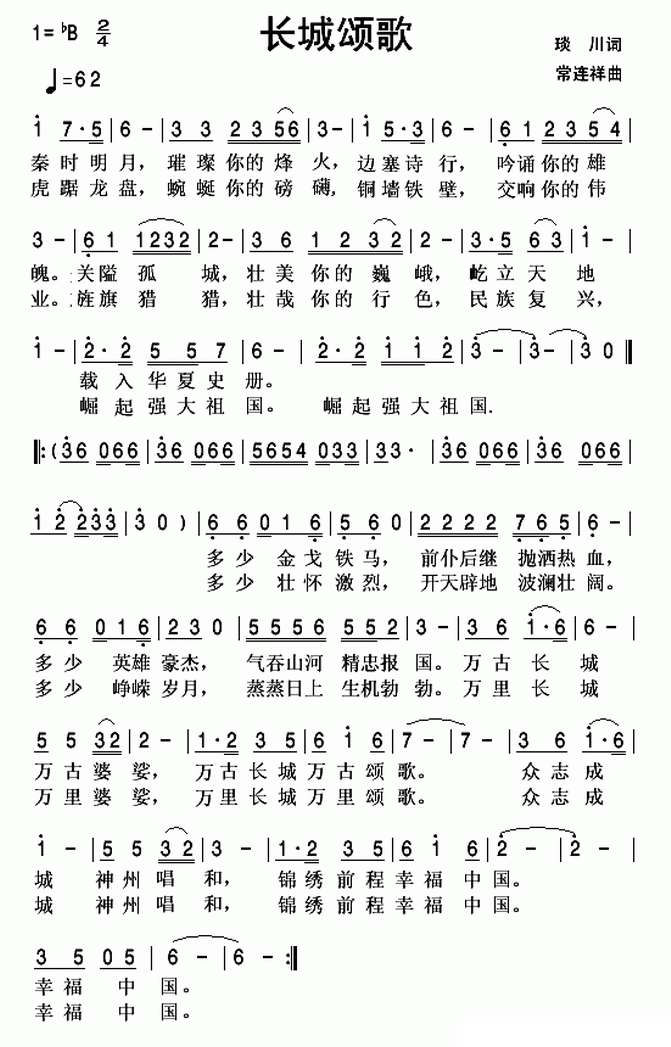 1=♭B 2/4 长城颂歌 琰 川词
♩=62 常连祥曲
1̇ 7·5 | 6 - | 3 3 2 3 5 6 | 3 - | 1̇ 5·3 | 6 - | 6̣ 1 2 3 5 4 |
秦时明月，璀璨你的烽火，边塞诗行，吟诵你的雄
虎踞龙盘，蜿蜒你的磅礴，铜墙铁壁，交响你的伟
3 - | 6̣ 1 1232 | 2 - | 3 6 1 2 3 2 | 2 - | 3·5 6 3 | 1̇ - |
魄。关隘孤城，壮美你的巍峨，屹立天地
业。旌旗猎猎，壮哉你的行色，民族复兴，
1̇ - | 2̇·2̇ 5 5 7 | 6 - | 2̇·2̇ 1̇ 1̇ 2̇ | 3̇ - | 3̇ - | 3̇ 0 ‖
载入华夏史册。
崛起强大祖国。 崛起强大祖国.
‖: ( 3̇6 066 | 3̇6 066 | 5654 033 | 33· | 3̇6 066 | 3̇6 066 |
1̇ 2̇ 2̇3̇3̇ | 3̇ 0 ) | 6̣ 6̣ 0 1 6̣ | 5̣ 6̣ 0 | 2 2 2 2 7̣ 6̣ 5̣ | 6̣ - |
多少 金戈铁马， 前仆后继 抛洒热血，
多少 壮怀激烈， 开天辟地 波澜壮阔。
6̣ 6̣ 0 1 6̣ | 2 3 0 | 5 5 5 6 5 5 2 | 3 - | 3 6 1̇·6 | 6 - |
多少 英雄豪杰， 气吞山河 精忠报国。万古长城
多少 峥嵘岁月， 蒸蒸日上 生机勃勃。万里长城
5 5 3 2 | 2 - | 1·2 3 5 | 6 1̇ 6 | 7 - | 7 - | 3 6 1̇·6 |
万古婆娑， 万古长城万古颂歌。 众志成
万里婆娑， 万里长城万里颂歌。 众志成
1̇ - | 5 5 3 2 | 3 - | 1·2 3 5 | 6 1̇ 6 | 2̇ - | 2̇ - |
城 神州唱和， 锦绣前程幸福中国。
城 神州唱和， 锦绣前程幸福中国。
3 5 0 5 | 6 - | 6 - :‖
幸福 中国。
幸福 中国。